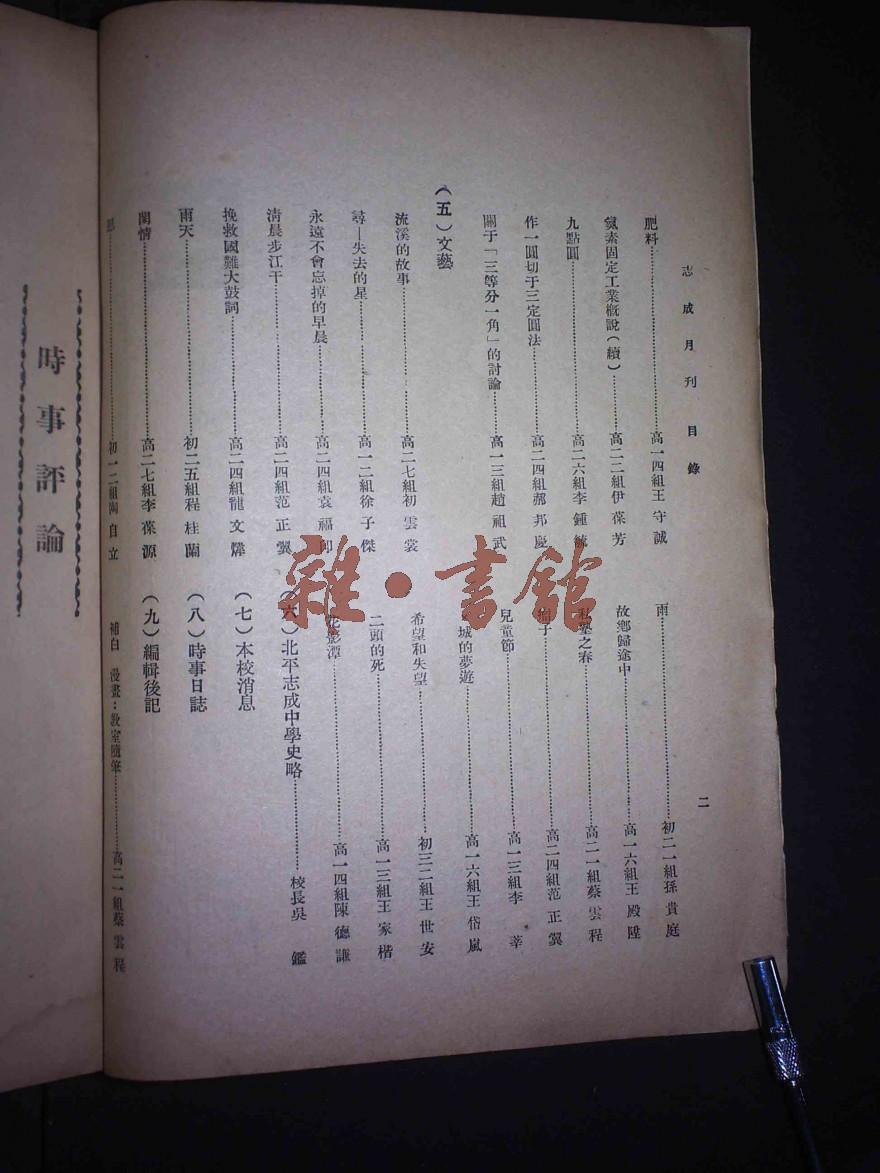 志成月刊 目錄
二
肥料…………高一四組王守誠
氮素固定工業概說（續）…………高二二組伊葆芳
九點圓…………高二六組李鍾
作一圓切于三定圓法…………高二四組郝邦慶
關于「三等分一角」的討論…………高一三組趙祖武
（五）文藝
流溪的故事…………高二七組初雲裳
尋—失去的星…………高一二組徐子傑
永遠不會忘掉的早晨…………高二四組袁福
清晨步江干…………高二四組范正翼
挽救國難大鼓詞…………高二四組龍文
雨天…………初二五組程桂蘭
閨情…………高二七組李葆源
…………初一二組陶自立
雨…………初二一組孫貴庭
故鄉歸途中…………高一六組王殿陞
私塾之春…………高二一組蔡雲程
子…………高二四組范正翼
兒童節…………高一三組李莘
城的夢遊…………高一六組王岱嵐
希望和失望…………初三二組王世安
二頭的死…………高一三組王家楷
影潭…………高一四組陳德謙
（六）北平志成中學史略…………校長吳鑑
（七）本校消息
（八）時事日誌
（九）編輯後記
補白 漫畫：教室隨筆…………高二一組蔡雲程
時事評論
雜·書館